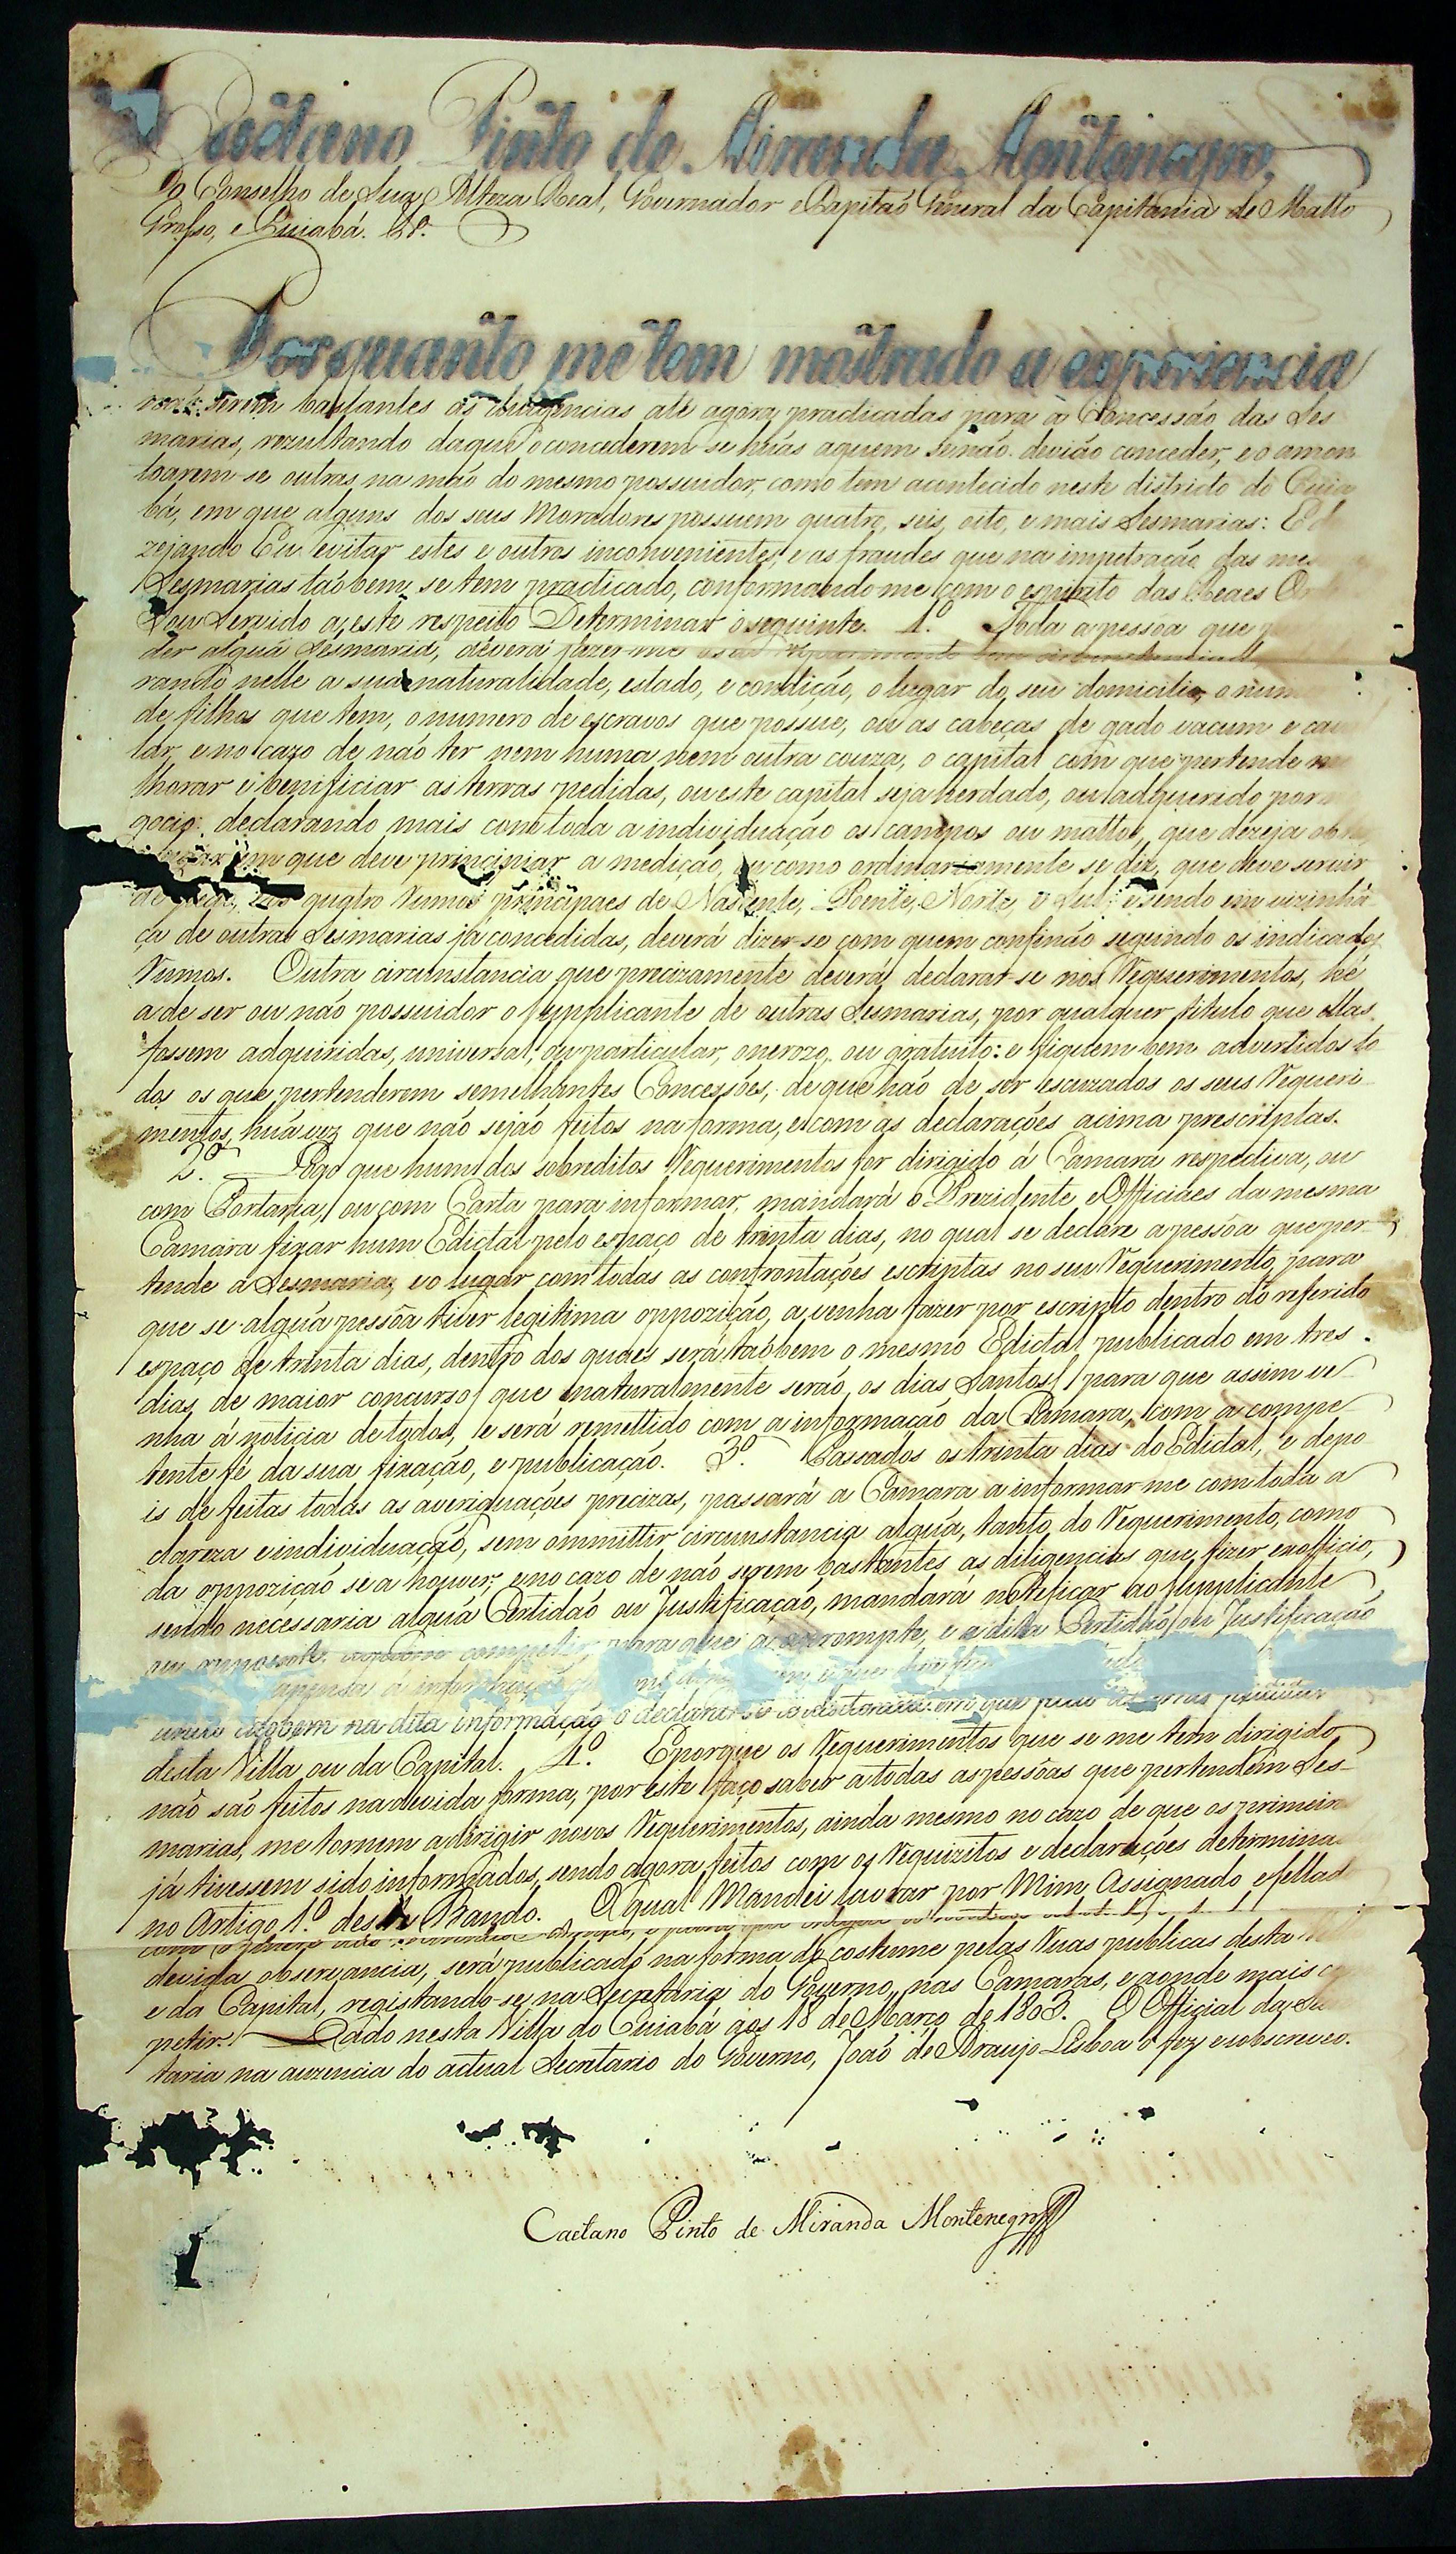 Caetano Pinto de Miranda Montenegro.
Do Conselho de Sua Alteza Real, Governador e Capitaõ General da Capitania de Matto
Grosso, e Cuiabá. &c.
Porquanto me tem mostrado a experiencia
serem bastantes as diligencias até agora practicadas para a Concessão das Ses
marias, rezultando daqui o concederem-se húas aquem senão devião conceder, e o amon
toarem-se outras na mão do mesmo possuidor, como tem acontecido neste districto do Cuia
bá, em que alguns dos seus Moradores possuem quatro, seis, oito, e mais Sesmarias: E de
zejando Eu evitar estes e outros inconvenientes, e as fraudes que na impetração das mes
Sesmarias tãobem se tem practicado, conformando-me com o espirito das Reaes
Sou Servido a este respeito Determinar o seguinte. 1.º Toda a pessoa que
der algúa Sesmaria, deverá fazer-me
rando nelle a sua naturalidade, estado, e condição, o lugar do seu domicilio, o num
de filhos que tem, o numero de escravos que possue, ou as cabeças de gado vacum e cav
lar, e no cazo de não ter nem huma nem outra couza, o capital com que pertende
lhorar e benificiar as terras pedidas, ou este capital seja herdado, ou adquerido por
gocio: declarando mais com toda a individuação os campos ou mattos, que dezeja
em que deve principiar a medição, ou como ordinariamente se diz, que deve servir
de quatro Rumos principaes de Nascente, Poente, Norte, e Sul: e sendo em vizinha
ça de outras Sesmarias já concedidas, deverá dizer-se com quem confinão seguindo os indicados
Rumos. Outra circunstancia que precizamente deverá declarar-se nos Requerimentos, hé
a de ser ou não possuidor o Supplicante de outras Sesmarias, por qualquer titulo que ellas
fossem adquiridas, universal, ou particular, onerozo, ou gratuito: e fiquem bem advertidos to
dos os que pertenderem semelhantes Concessões, de que hão de ser escuzados os seus Requeri
mentos, húa vez que não sejão feitos na forma, e com as declarações acima prescriptas.
2.º Logo que hum dos sobreditos Requerimentos for dirigido á Camara respectiva, ou
com Portaria, ou com Carta para informar, mandará o Prezidente e Officiaes da mesma
Camara fixar hum Edictal pelo espaço de trinta dias, no qual se declare a pessôa que per
tende a Sesmaria, e o lugar com todas as confrontações escriptas no seu Requerimento, para
que se algúa pessôa tiver legitima oppozição, a venha fazer por escripto dentro do referido
espaço de trinta dias, dentro dos quaes será tãobem o mesmo Edictal publicado em tres
dias de maior concurso, que naturalmente serão os dias Santos, para que assim ve
nha á noticia de todos, e será remettido com a informação da Camara, com a compe
tente fé da sua fixação, e publicação. 3.º Passados os trinta dias do Edictal, e depo
is de feitas todas as averiguações precizas, passará a Camara a informar-me com toda a
clareza e individuação, sem ommittir circunstancia algúa, tanto do Requerimento, como
da oppozição se a houver, e no cazo de não serem bastantes as diligencias que fizer exofficio,
sendo necessaria algúa Certidão ou Justificação, mandará notificar ao Supplicante
ou opponente, para que a aprompte, e a dita Certidão, ou Justificação
na dita informação o declarar-se a distancia em que
desta Villa ou da Capital. 4.º E porque os Requerimentos que se me tem dirigido
não são feitos na devida forma, por este faço saber a todas as pessôas que pertendem Ses
marias, me tornem a dirigir novos Requerimentos, ainda mesmo no cazo de que os primeiros
já tivessem sido informados, sendo agora feitos com os Requizitos e declarações determina
no Artigo 1.º deste Bando. O qual Mandei lavrar por Mim Assignado e sellad
devida observancia, será publicado na forma do costume pelas Ruas publicas desta
e da Capital, registando-se na Secretaria do Governo, nas Camaras, e aonde mais
petir. Dado nesta Villa do Cuiabá aos 18 de Março de 1803. O Official da Se
taria na auzencia do actual Secretario do Governo, João de Araujo Lisboa o fez e sobscreveo.
Caetano Pinto de Miranda Montenegro